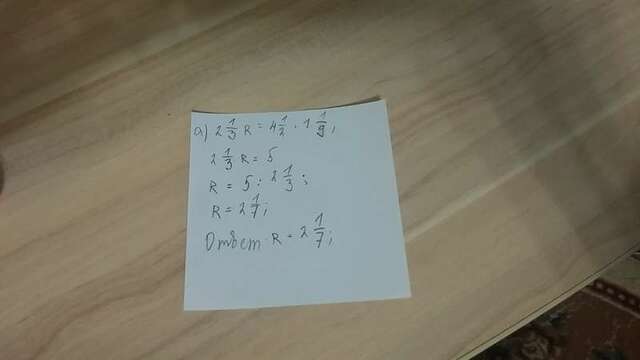 а) 2 1/3 R = 4 1/2 · 1 1/9;
2 1/3 R = 5
R = 5 : 2 1/3;
R = 2 1/7;
Ответ R = 2 1/7;